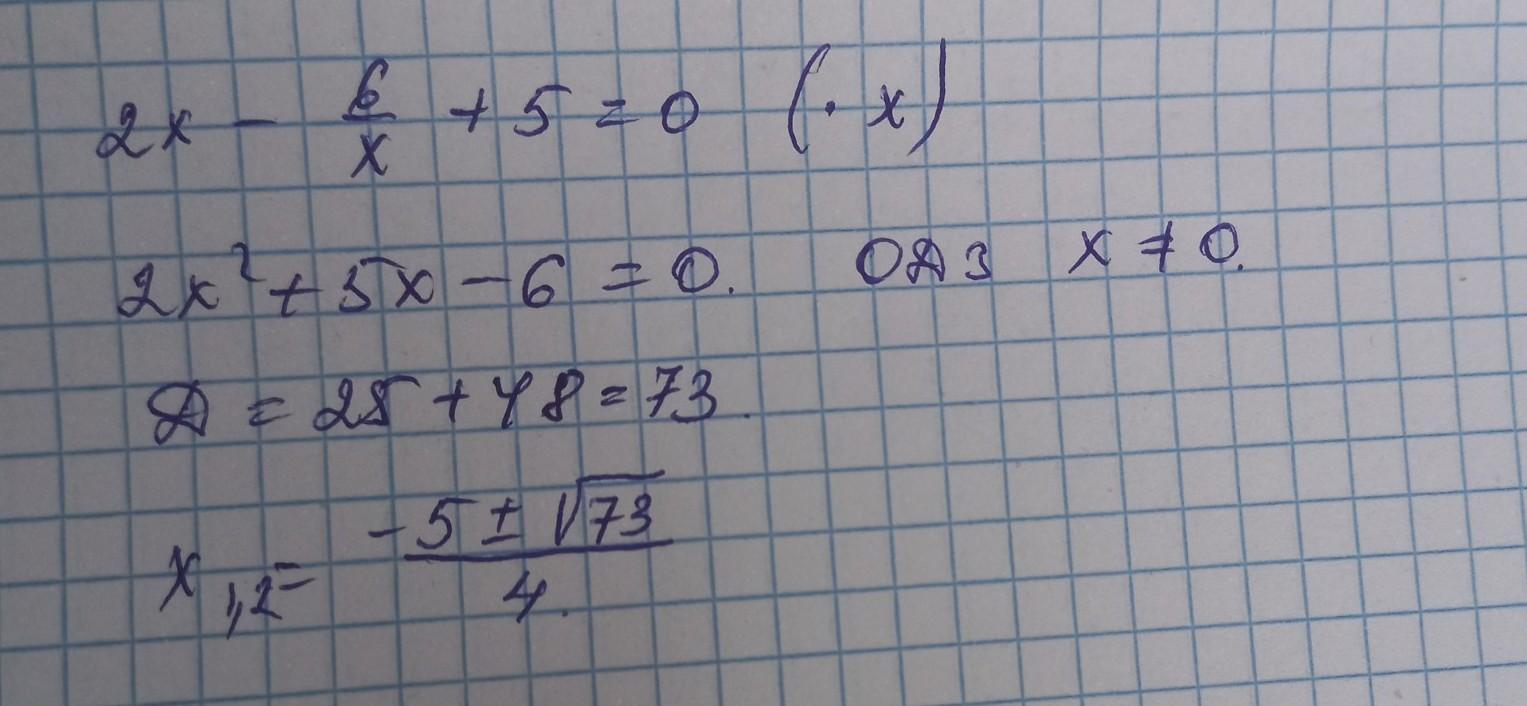 2x - 6/x + 5 = 0 (· x)
2x² + 5x - 6 = 0. ОДЗ x ≠ 0.
Д = 25 + 48 = 73.
x 1,2 = (-5 ± √73)/4.